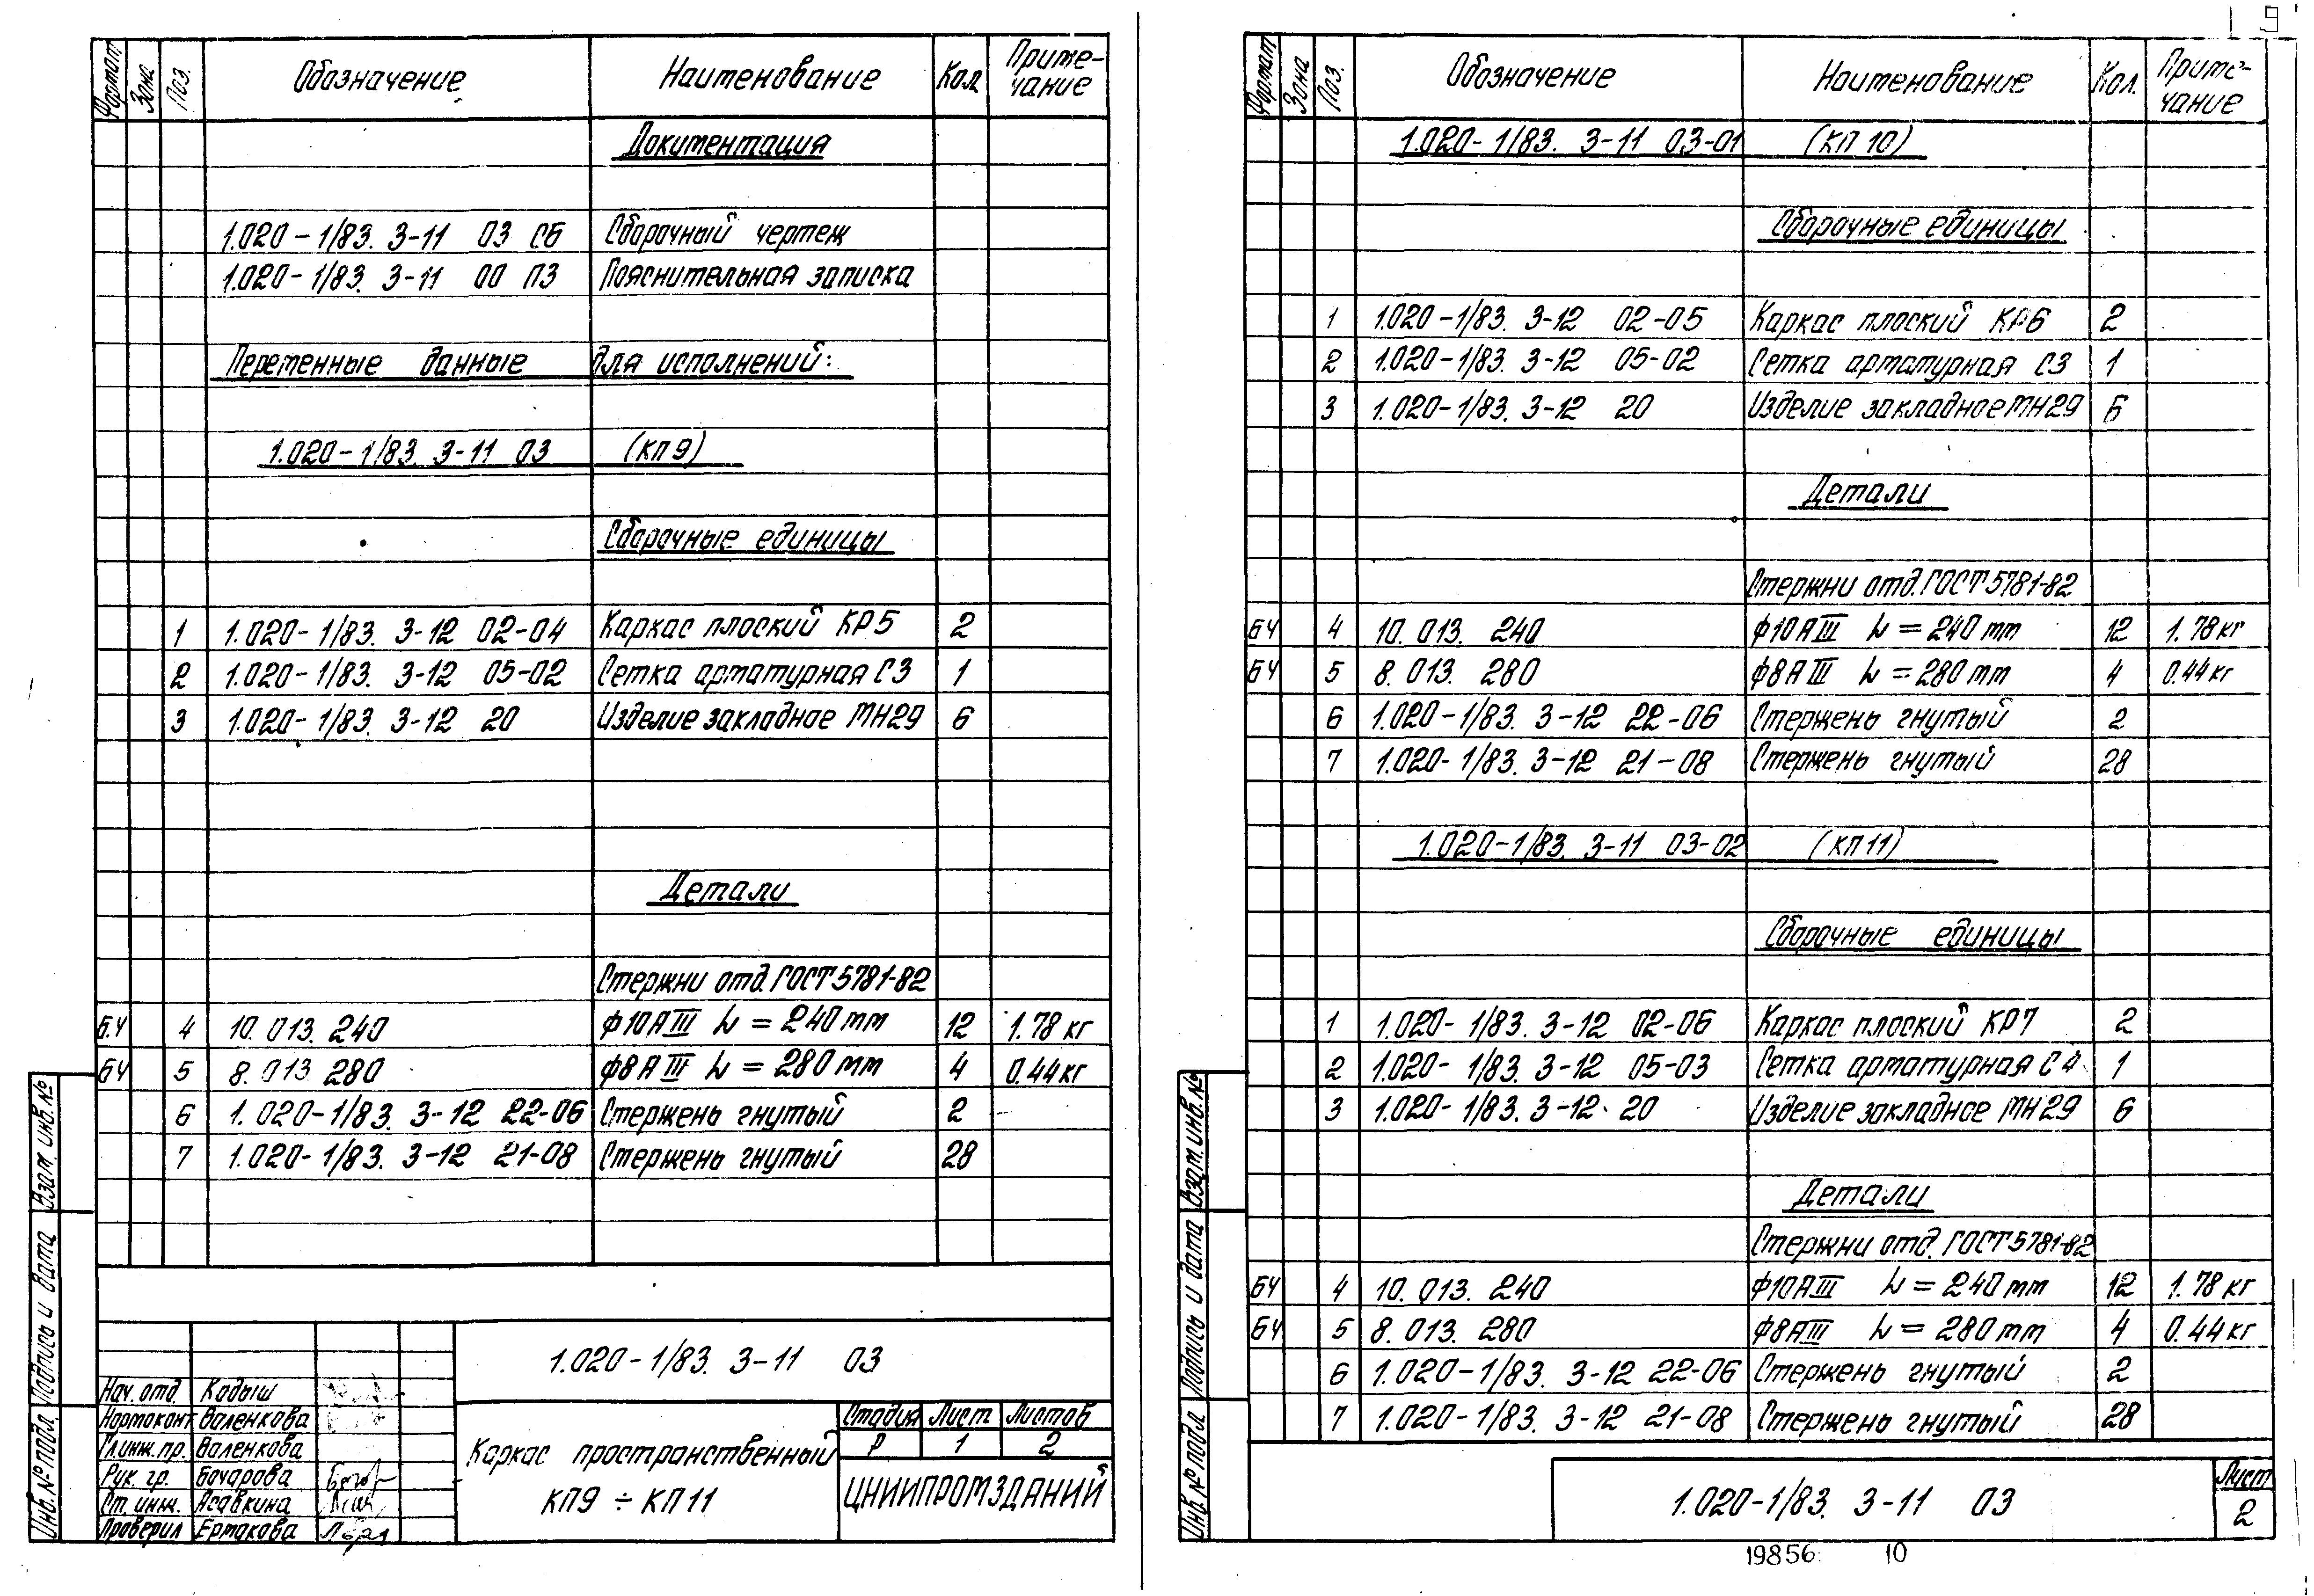 Формат Зона Поз. Обозначение Наименование Кол. Приме-
чание
Документация
1.020-1/83. 3-11 03 СБ Сборочный чертеж
1.020-1/83. 3-11 00 ПЗ Пояснительная записка
Переменные данные для исполнений:
1.020-1/83. 3-11 03 (КП 9)
Сборочные единицы
1 1.020-1/83. 3-12 02-04 Каркас плоский КР5 2
2 1.020-1/83. 3-12 05-02 Сетка арматурная С3 1
3 1.020-1/83. 3-12 20 Изделие закладное МН29 6
Детали
Стержни отд. ГОСТ 5781-82
Б.Ч 4 10. 013. 240 Ф10АIII L = 240 мм 12 1.78 кг
БЧ 5 8. 013. 280 Ф8АIII L = 280 мм 4 0.44 кг
6 1.020-1/83. 3-12 22-06 Стержень гнутый 2
7 1.020-1/83. 3-12 21-08 Стержень гнутый 28
Взам. инв. №
Подпись и дата
Инв. № подл.
1.020-1/83. 3-11 03
Нач. отд. Кодыш
Нормоконт Валенкова
Гл.инж.пр. Валенкова
Рук. гр. Бочарова
Ст. инж. Асавкина
Проверил Ермакова
Каркас пространственный
КП9 ÷ КП11
Стадия Лист Листов
Р 1 2
ЦНИИПРОМЗДАНИЙ
9
Формат Зона Поз. Обозначение Наименование Кол. Приме-
чание
1.020-1/83. 3-11 03-01 (КП 10)
Сборочные единицы
1 1.020-1/83. 3-12 02-05 Каркас плоский КР6 2
2 1.020-1/83. 3-12 05-02 Сетка арматурная С3 1
3 1.020-1/83. 3-12 20 Изделие закладное МН29 6
Детали
Стержни отд. ГОСТ 5781-82
БЧ 4 10. 013. 240 Ф10АIII L = 240 мм 12 1.78 кг
БЧ 5 8. 013. 280 Ф8АIII L = 280 мм 4 0.44 кг
6 1.020-1/83. 3-12 22-06 Стержень гнутый 2
7 1.020-1/83. 3-12 21-08 Стержень гнутый 28
1.020-1/83. 3-11 03-02 (КП 11)
Сборочные единицы
1 1.020-1/83. 3-12 02-06 Каркас плоский КР7 2
2 1.020-1/83. 3-12 05-03 Сетка арматурная С4 1
3 1.020-1/83. 3-12 20 Изделие закладное МН29 6
Детали
Стержни отд. ГОСТ 5781-82
БЧ 4 10. 013. 240 Ф10АIII L = 240 мм 12 1.78 кг
БЧ 5 8. 013. 280 Ф8АIII L = 280 мм 4 0.44 кг
6 1.020-1/83. 3-12 22-06 Стержень гнутый 2
7 1.020-1/83. 3-12 21-08 Стержень гнутый 28
Взам. инв. №
Подпись и дата
Инв. № подл.
1.020-1/83. 3-11 03
Лист
2
19856 10